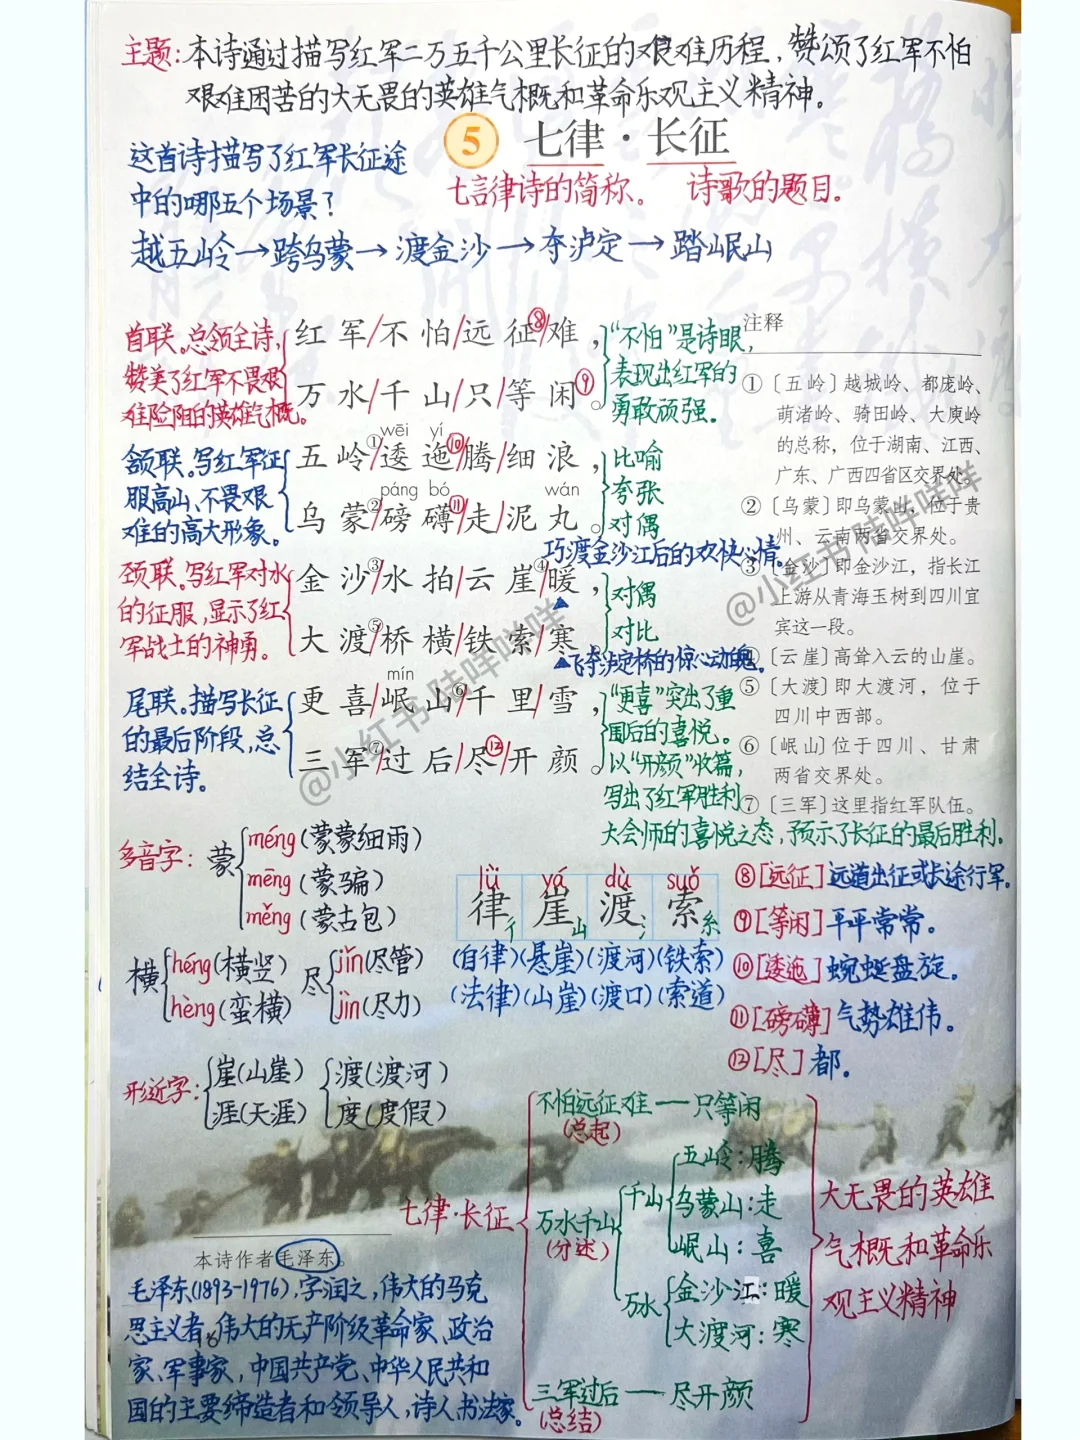 主题:本诗通过描写红军二万五千公里长征的艰难历程,赞颂了红军不怕
艰难困苦的大无畏的英雄气概和革命乐观主义精神。
5 七律·长征
七言律诗的简称。 诗歌的题目。
这首诗描写了红军长征途
中的哪五个场景?
越五岭→跨乌蒙→渡金沙→夺泸定→踏岷山
首联。总领全诗,
赞美了红军不畏艰
难险阻的英雄气概。
红军/不怕/远征⑧/难,
万水/千山/只/等闲⑨。
“不怕”是诗眼,
表现出红军的
勇敢顽强。
颔联。写红军征
服高山、不畏艰
难的高大形象。
wēi yí
五岭①/逶迤⑩/腾/细浪,
páng bó wán
乌蒙②/磅礴⑪/走/泥丸。
比喻
夸张
对偶
巧渡金沙江后的欢快心情。
颈联。写红军对水
的征服,显示了红
军战士的神勇。
金沙③/水拍/云崖④/暖,
大渡⑤/桥横/铁索/寒。
对偶
对比
飞夺泸定桥的惊心动魄。
尾联。描写长征
的最后阶段,总
结全诗。
mín
更喜/岷山⑥/千里/雪,
三军⑦/过后/尽⑫/开颜。
“更喜”突出了重
围后的喜悦。
以“开颜”收篇,
写出了红军胜利
大会师的喜悦之态,预示了长征的最后胜利。
注释
①〔五岭〕越城岭、都庞岭、
萌渚岭、骑田岭、大庾岭
的总称,位于湖南、江西、
广东、广西四省区交界处。
②〔乌蒙〕即乌蒙山,位于贵
州、云南两省交界处。
③〔金沙〕即金沙江,指长江
上游从青海玉树到四川宜
宾这一段。
④〔云崖〕高耸入云的山崖。
⑤〔大渡〕即大渡河,位于
四川中西部。
⑥〔岷山〕位于四川、甘肃
两省交界处。
⑦〔三军〕这里指红军队伍。
⑧[远征]远道出征或长途行军。
⑨[等闲]平平常常。
⑩[逶迤]蜿蜒盘旋。
⑪[磅礴]气势雄伟。
⑫[尽]都。
多音字:蒙
méng(蒙蒙细雨)
mēng(蒙骗)
měng(蒙古包)
横
héng(横竖)
hèng(蛮横)
尽
jǐn(尽管)
jìn(尽力)
lǜ yá dù suǒ
律彳 崖山 渡氵 索糸
(自律)(悬崖)(渡河)(铁索)
(法律)(山崖)(渡口)(索道)
形近字:
崖(山崖)
涯(天涯)
渡(渡河)
度(度假)
七律·长征
不怕远征难—只等闲
(总起)
万水千山
(分述)
千山
五岭:腾
乌蒙山:走
岷山:喜
万水
金沙江:暖
大渡河:寒
三军过后—尽开颜
(总结)
大无畏的英雄
气概和革命乐
观主义精神
本诗作者毛泽东。
毛泽东(1893-1976),字润之,伟大的马克
思主义者,伟大的无产阶级革命家、政治
家、军事家,中国共产党、中华人民共和
国的主要缔造者和领导人,诗人书法家。
16
@小红书 陆哔咩咩
@小红书 陆哔咩咩